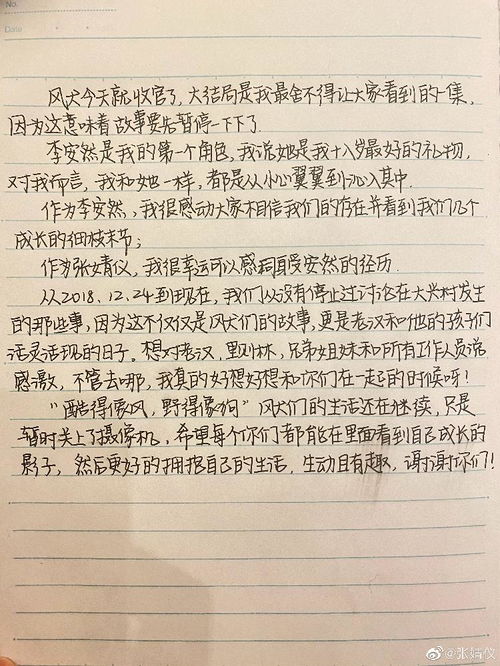 No.
Date
风犬今天就收官了,大结局是我最舍不得让大家看到的一集,
因为这意味着故事要先暂停一下下了.
李安然是我的第一个角色,我说她是我十八岁最好的礼物,
对我而言,我和她一样,都是从小心翼翼到沁入其中.
作为李安然,我很感动大家不相信我们的存在并看到我们几个
成长的细枝末节;
作为张婧仪,我很幸运可以感同身受安然的经历.
从2018.12.24到现在,我们从没有停止过讨论在大米村发生
的那些事,因为这不仅仅是风犬们的故事,更是老汉和他的孩子们
活灵活现的日子.想对老汉,里则林,兄弟姐妹和所有工作人员说
感激,不管去哪,我真的好想好想和你们在一起的时候呀!
"酷得像风,野得像狗"风犬们的生活还在继续,只是
暂时关上了摄像机,希望每个你们都能在里面看到自己成长的
影子,然后更好的拥抱自己的生活,生动且有趣,谢谢你们!
@张婧仪